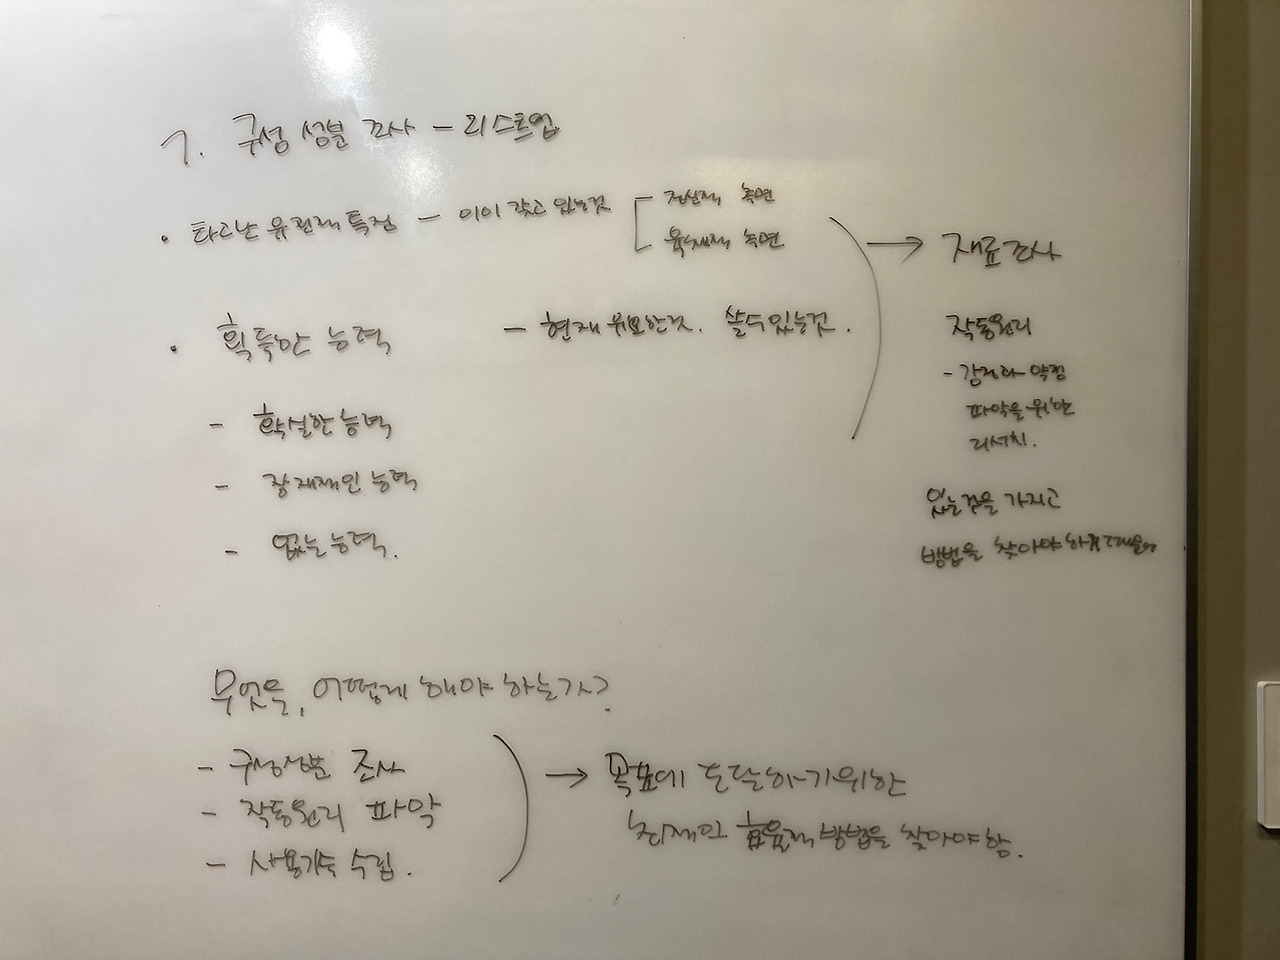 1. 구성 성분 조사 - 리스트업
• 타고난 유전적 특징 - 이미 갖고 있는것
정신적 측면
육체적 측면
→ 재료조사
• 획득한 능력 - 현재 유효한것. 쓸수있는것.
- 확실한 능력
- 잠재적인 능력
- 없는 능력.
작동원리
- 강점과 약점
파악을 위한
리서치.
있는것을 가지고
방법을 찾아야 하기 때문에
무엇을, 어떻게 해야 하는가?
- 구성성분 조사
- 작동원리 파악
- 사용기술 수립.
→ 목표에 도달하기위한
최적인 효율적 방법을 찾아야함.